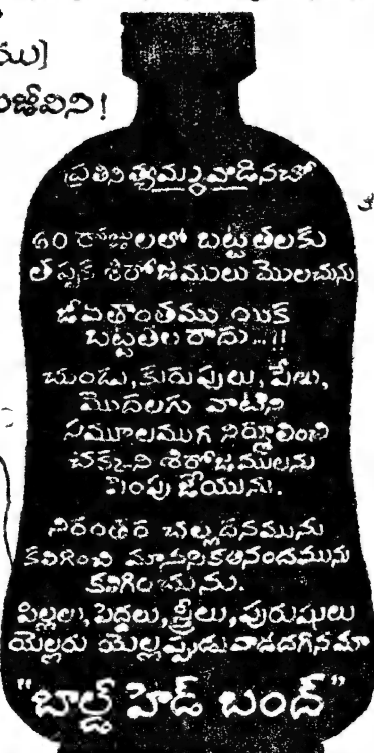 ము]
ప్రతినిత్యమ్ము వాడినచో
60 రోజులలో బట్టతలకు
తప్పక శిరోజములు మొలచును
జీవితాంతము యిక
బట్టతల రాదు...!!
చుండు, కురుపులు, పేలు,
మొదలగు వాటిని
సమూలముగ నిర్మూలించి
చక్కని శిరోజములను
పెంపు జేయును.
నిరంతర చల్లదనమును
కలిగించి మానసికఆనందమును
కలిగించును.
పిల్లలు, పెద్దలు, స్త్రీలు, పురుషులు
యెల్లరు యెల్లప్పుడు వాడదగినమా
"బాల్డ్ హెడ్ బంద్"